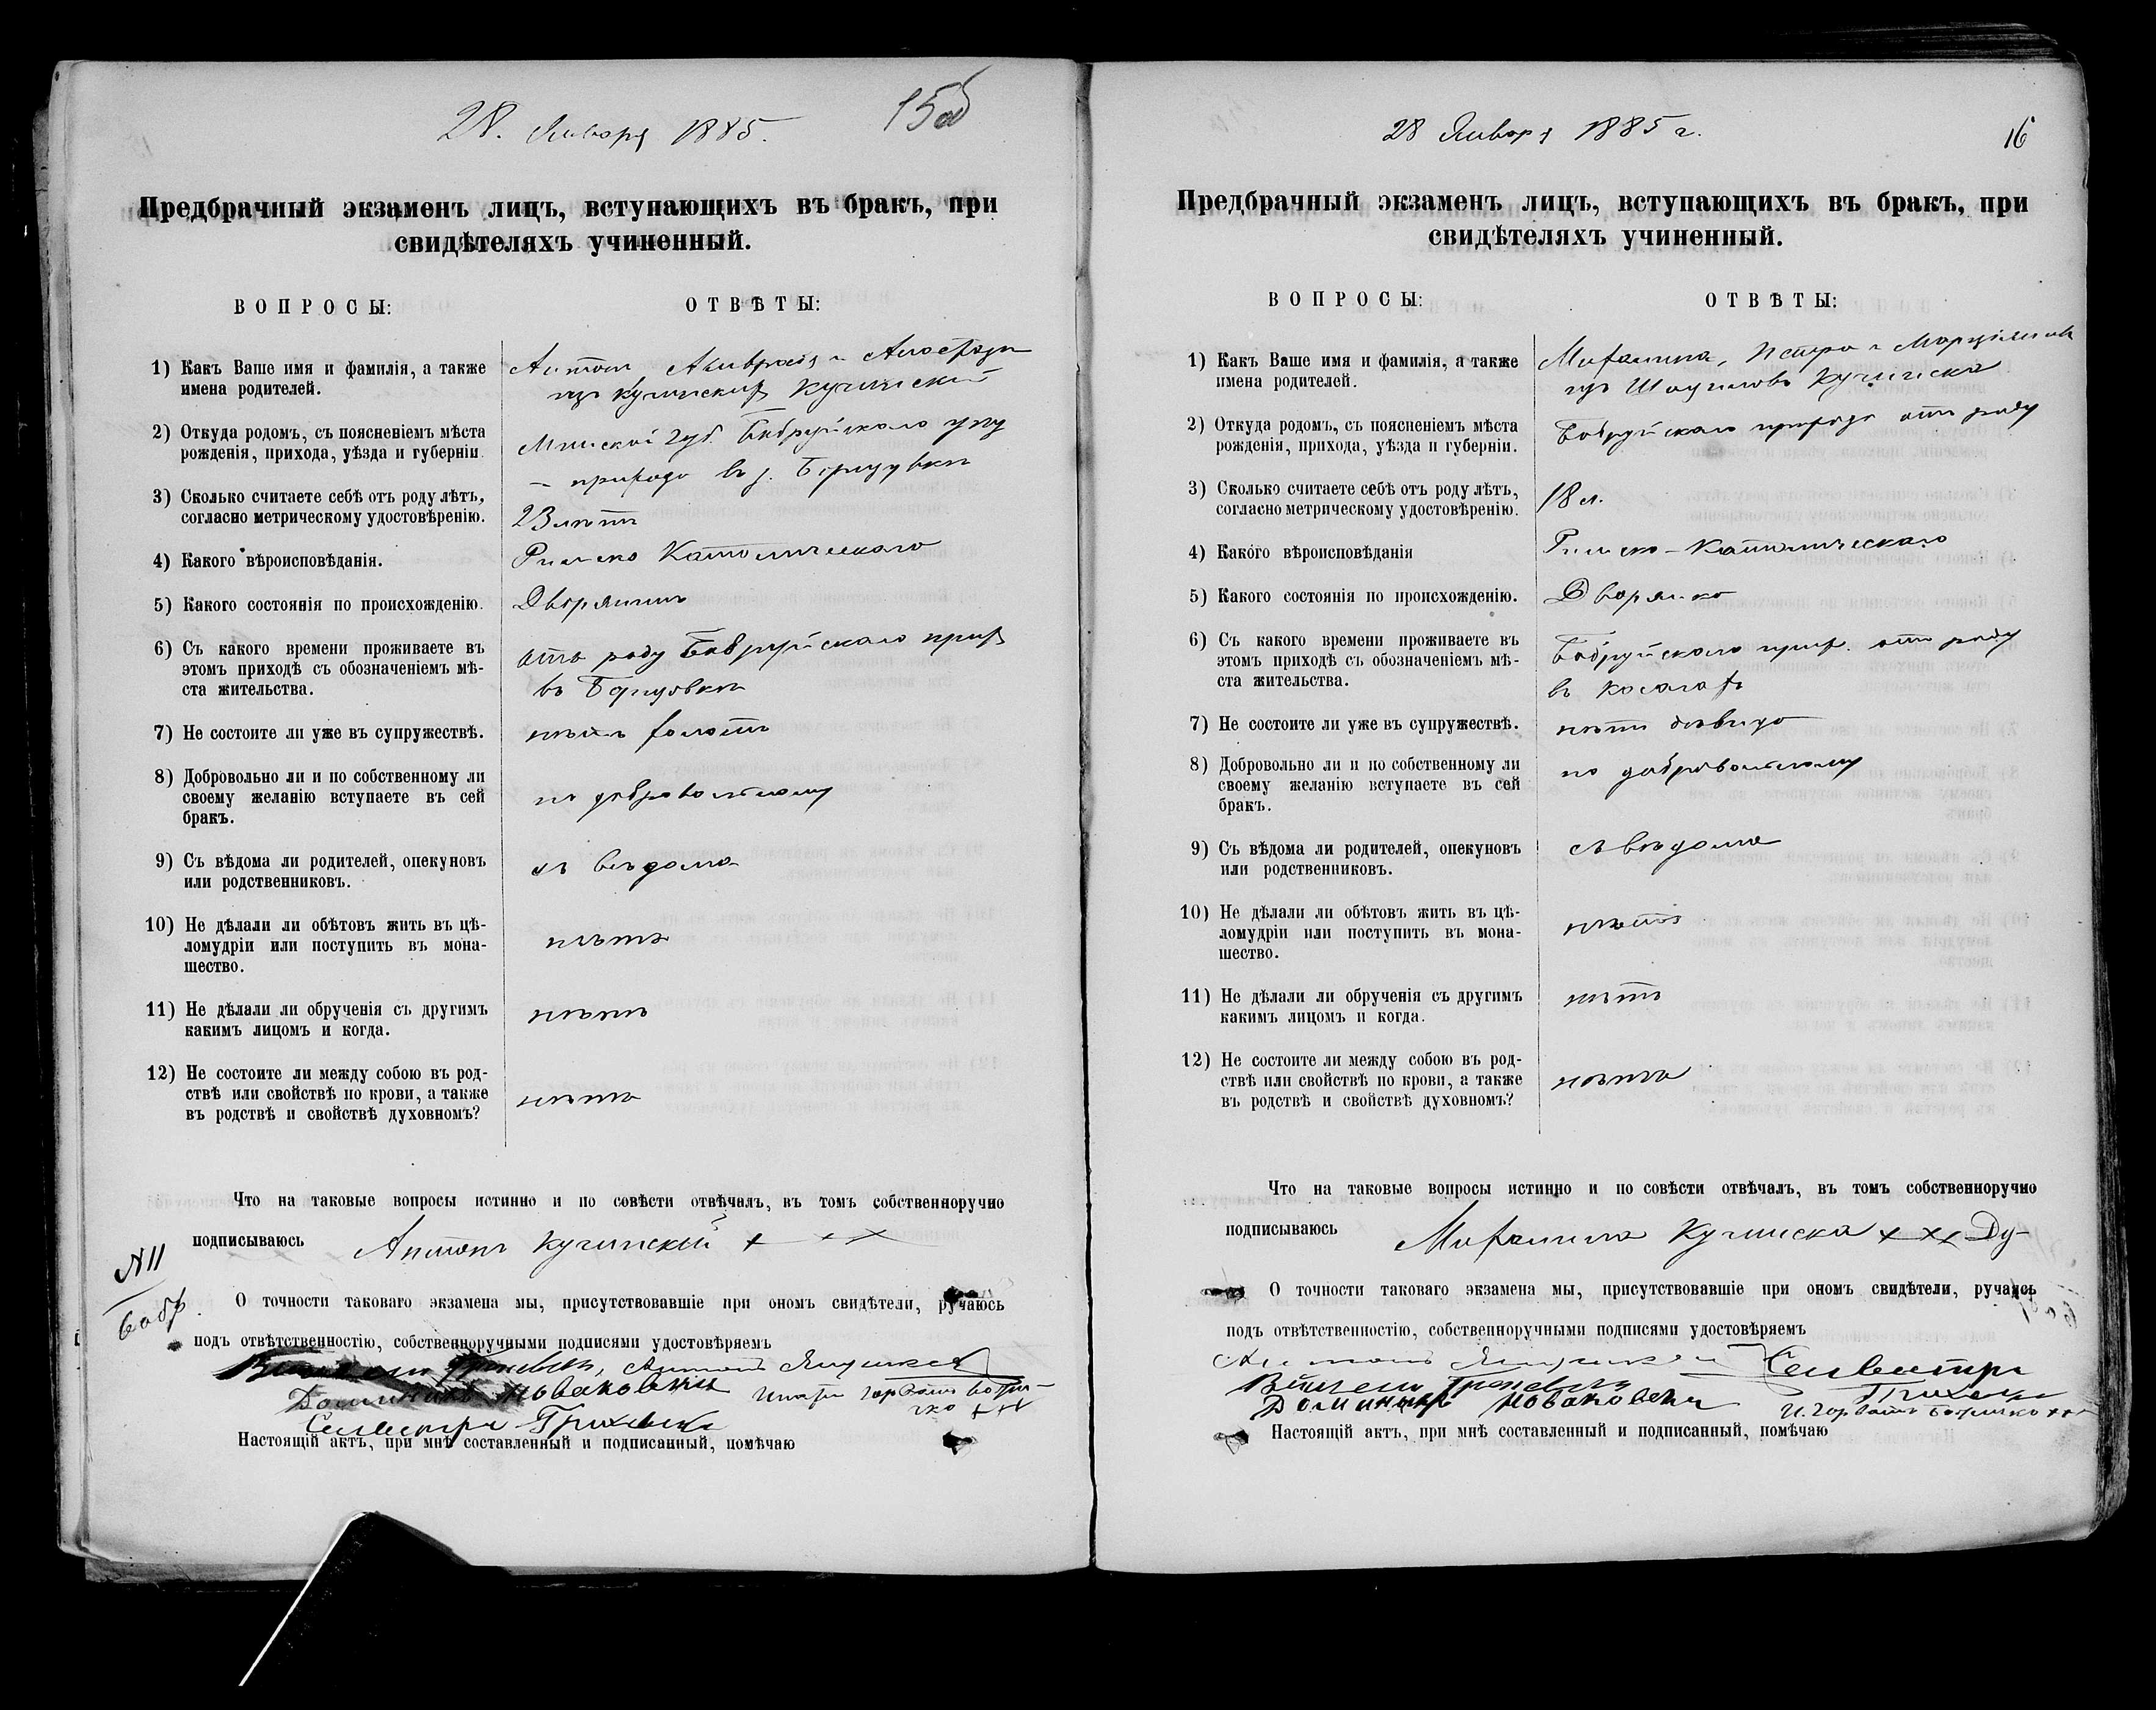 28. Января 1885.
15об
Предбрачный экзаменъ лицъ, вступающихъ въ бракъ, при
свидѣтеляхъ учиненный.
ВОПРОСЫ:
ОТВѢТЫ:
1) Какъ Ваше имя и фамилія, а также
имена родителей.
Антон
изъ Кучинских Кучинский
2) Откуда родомъ, съ поясненіемъ мѣста
рожденія, прихода, уѣзда и губерніи.
Минской губ. Бобруйскаго
прихода въ д.
3) Сколько считаете себѣ отъ роду лѣтъ,
согласно метрическому удостовѣренію.
23 лѣтъ
4) Какого вѣроисповѣданія.
Римско Католическаго
5) Какого состоянія по происхожденію.
Дворянинъ
6) Съ какого времени проживаете въ
этомъ приходѣ съ обозначеніемъ мѣ-
ста жительства.
отъ роду Бобруйскаго прих
въ
7) Не состоите ли уже въ супружествѣ.
нѣтъ холостъ
8) Добровольно ли и по собственному ли
своему желанію вступаете въ сей
бракъ.
по добровольному
9) Съ вѣдома ли родителей, опекуновъ
или родственниковъ.
съ вѣдома
10) Не дѣлали ли обѣтовъ жить въ цѣ-
ломудріи или поступить въ мона-
шество.
нѣтъ
11) Не дѣлали ли обрученія съ другимъ
какимъ лицомъ и когда.
нѣтъ
12) Не состоите ли между собою въ род-
ствѣ или свойствѣ по крови, а также
въ родствѣ и свойствѣ духовномъ?
нѣтъ
Что на таковые вопросы истинно и по совѣсти отвѣчалъ, въ томъ собственноручно
подписываюсь Антонъ Кучинский + + ×
N 11
Бобр.
О точности таковаго экзамена мы, присутствовавшіе при ономъ свидѣтели, ручаюсь
подъ отвѣтственностію, собственноручными подписями удостовѣряемъ
Антонъ
Новаковскій
Сильвестръ
Настоящій актъ, при мнѣ составленный и подписанный, помѣчаю
28 Января 1885 г.
16
Предбрачный экзаменъ лицъ, вступающихъ въ бракъ, при
свидѣтеляхъ учиненный.
ВОПРОСЫ:
ОТВѢТЫ:
1) Какъ Ваше имя и фамилія, а также
имена родителей.
Михалина, Петра и
изъ Кучинска
2) Откуда родомъ, съ поясненіемъ мѣста
рожденія, прихода, уѣзда и губерніи.
Бобруйскаго прихода отъ роду
3) Сколько считаете себѣ отъ роду лѣтъ,
согласно метрическому удостовѣренію.
18 л.
4) Какого вѣроисповѣданія
Римско-Католическаго
5) Какого состоянія по происхожденію.
Дворянка
6) Съ какого времени проживаете въ
этомъ приходѣ съ обозначеніемъ мѣ-
ста жительства.
Бобруйскаго прих. отъ роду
въ
7) Не состоите ли уже въ супружествѣ.
нѣтъ дѣвица
8) Добровольно ли и по собственному ли
своему желанію вступаете въ сей
бракъ.
по добровольному
9) Съ вѣдома ли родителей, опекуновъ
или родственниковъ.
съ вѣдома
10) Не дѣлали ли обѣтовъ жить въ цѣ-
ломудріи или поступить въ мона-
шество.
нѣтъ
11) Не дѣлали ли обрученія съ другимъ
какимъ лицомъ и когда.
нѣтъ
12) Не состоите ли между собою въ род-
ствѣ или свойствѣ по крови, а также
въ родствѣ и свойствѣ духовномъ?
нѣтъ
Что на таковые вопросы истинно и по совѣсти отвѣчалъ, въ томъ собственноручно
подписываюсь Михалина Кучинска + ××
О точности таковаго экзамена мы, присутствовавшіе при ономъ свидѣтели, ручаюсь
подъ отвѣтственностію, собственноручными подписями удостовѣряемъ
Антонъ Сильвестръ
Настоящій актъ, при мнѣ составленный и подписанный, помѣчаю